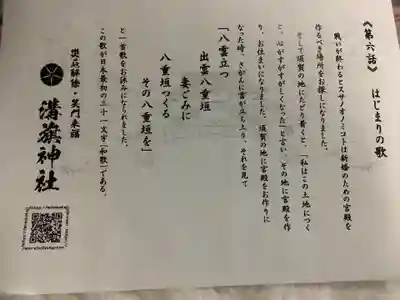 《第六話》 はじまりの歌
戦いが終わるとスサノオノミコトは新婚のための宮殿を
作るべき場所をお探しになりました。
そして須賀の地にたどり着くと、「私はこの土地につく
と、心がすがすがしくなった」と言い、その地に宮殿を作
り、お住まいになりました。須賀の地に宮殿をお作りに
なった時、さかんに雲が立ち上り、それを見て
「八雲立つ
出雲八重垣
妻ごみに
八重垣つくる
その八重垣を」
と一首歌をお詠みになられました。
この歌が日本最初の三十一文字(和歌)である。
災厄解除・笑門来福
溝旗神社